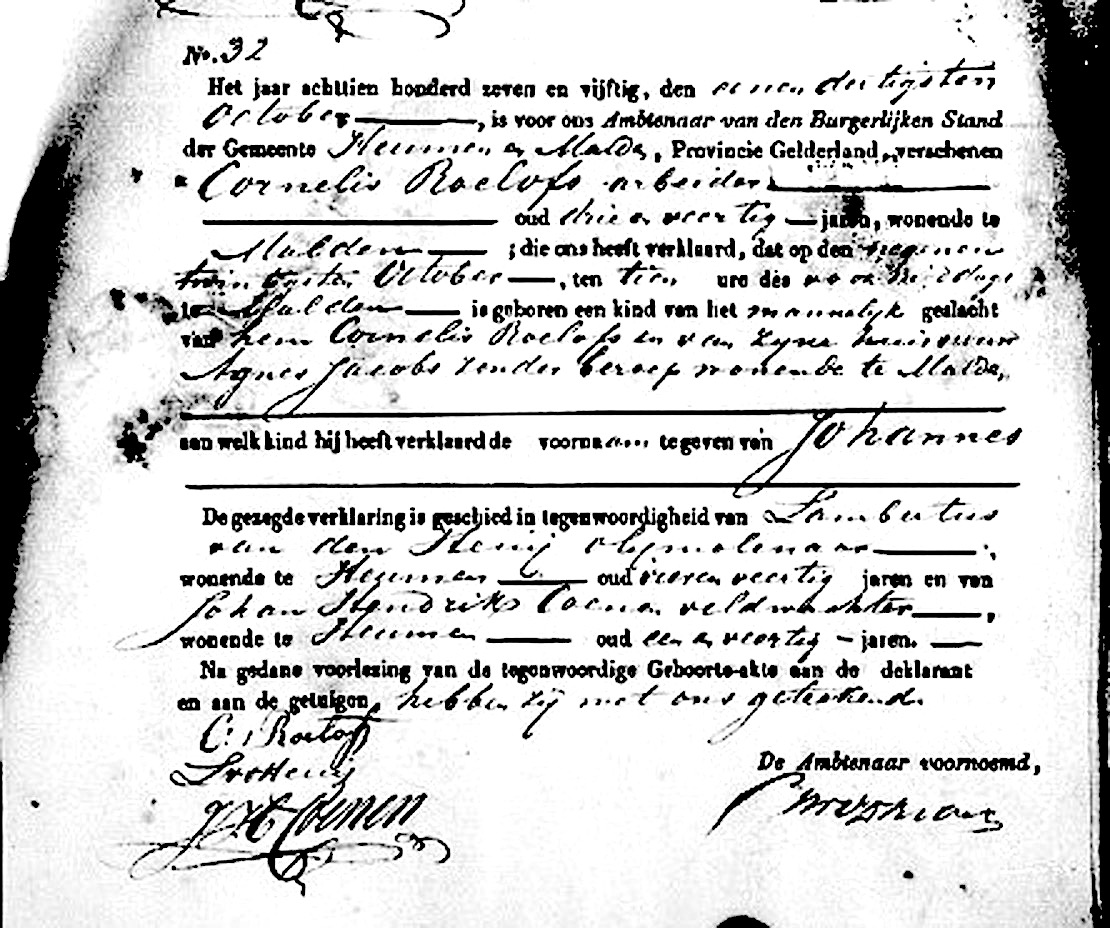 No. 32
Het jaar achttien honderd zeven en vijftig, den eenendertigsten
October, is voor ons Ambtenaar van den Burgerlijken Stand
der Gemeente Heumen en Malden, Provincie Gelderland, verschenen
Cornelis Roelofs arbeider
oud drie en veertig jaren, wonende te
Malden ; die ons heeft verklaard, dat op den negenen
twintigsten October, ten tien ure des voormiddags
te Malden is geboren een kind van het mannelijk geslacht
van hem Cornelis Roelofs en van zyne huisvrouw
Agnes Jacobs zonder beroep wonende te Malden,
aan welk kind hij heeft verklaard de voornaam te geven van Johannes
De gezegde verklaring is geschied in tegenwoordigheid van Lambertus
van den Heuij olymolenaar,
wonende te Heumen oud vier en veertig jaren en van
Johan Hendrik Coenen veldwachter,
wonende te Heumen oud een en veertig jaren.
Na gedane voorlezing van de tegenwoordige Geboorte-akte aan de deklarant
en aan de getuigen, hebben zij met ons geteekend.
C. Roelofs
De Ambtenaar voornoemd,
JH Coenen